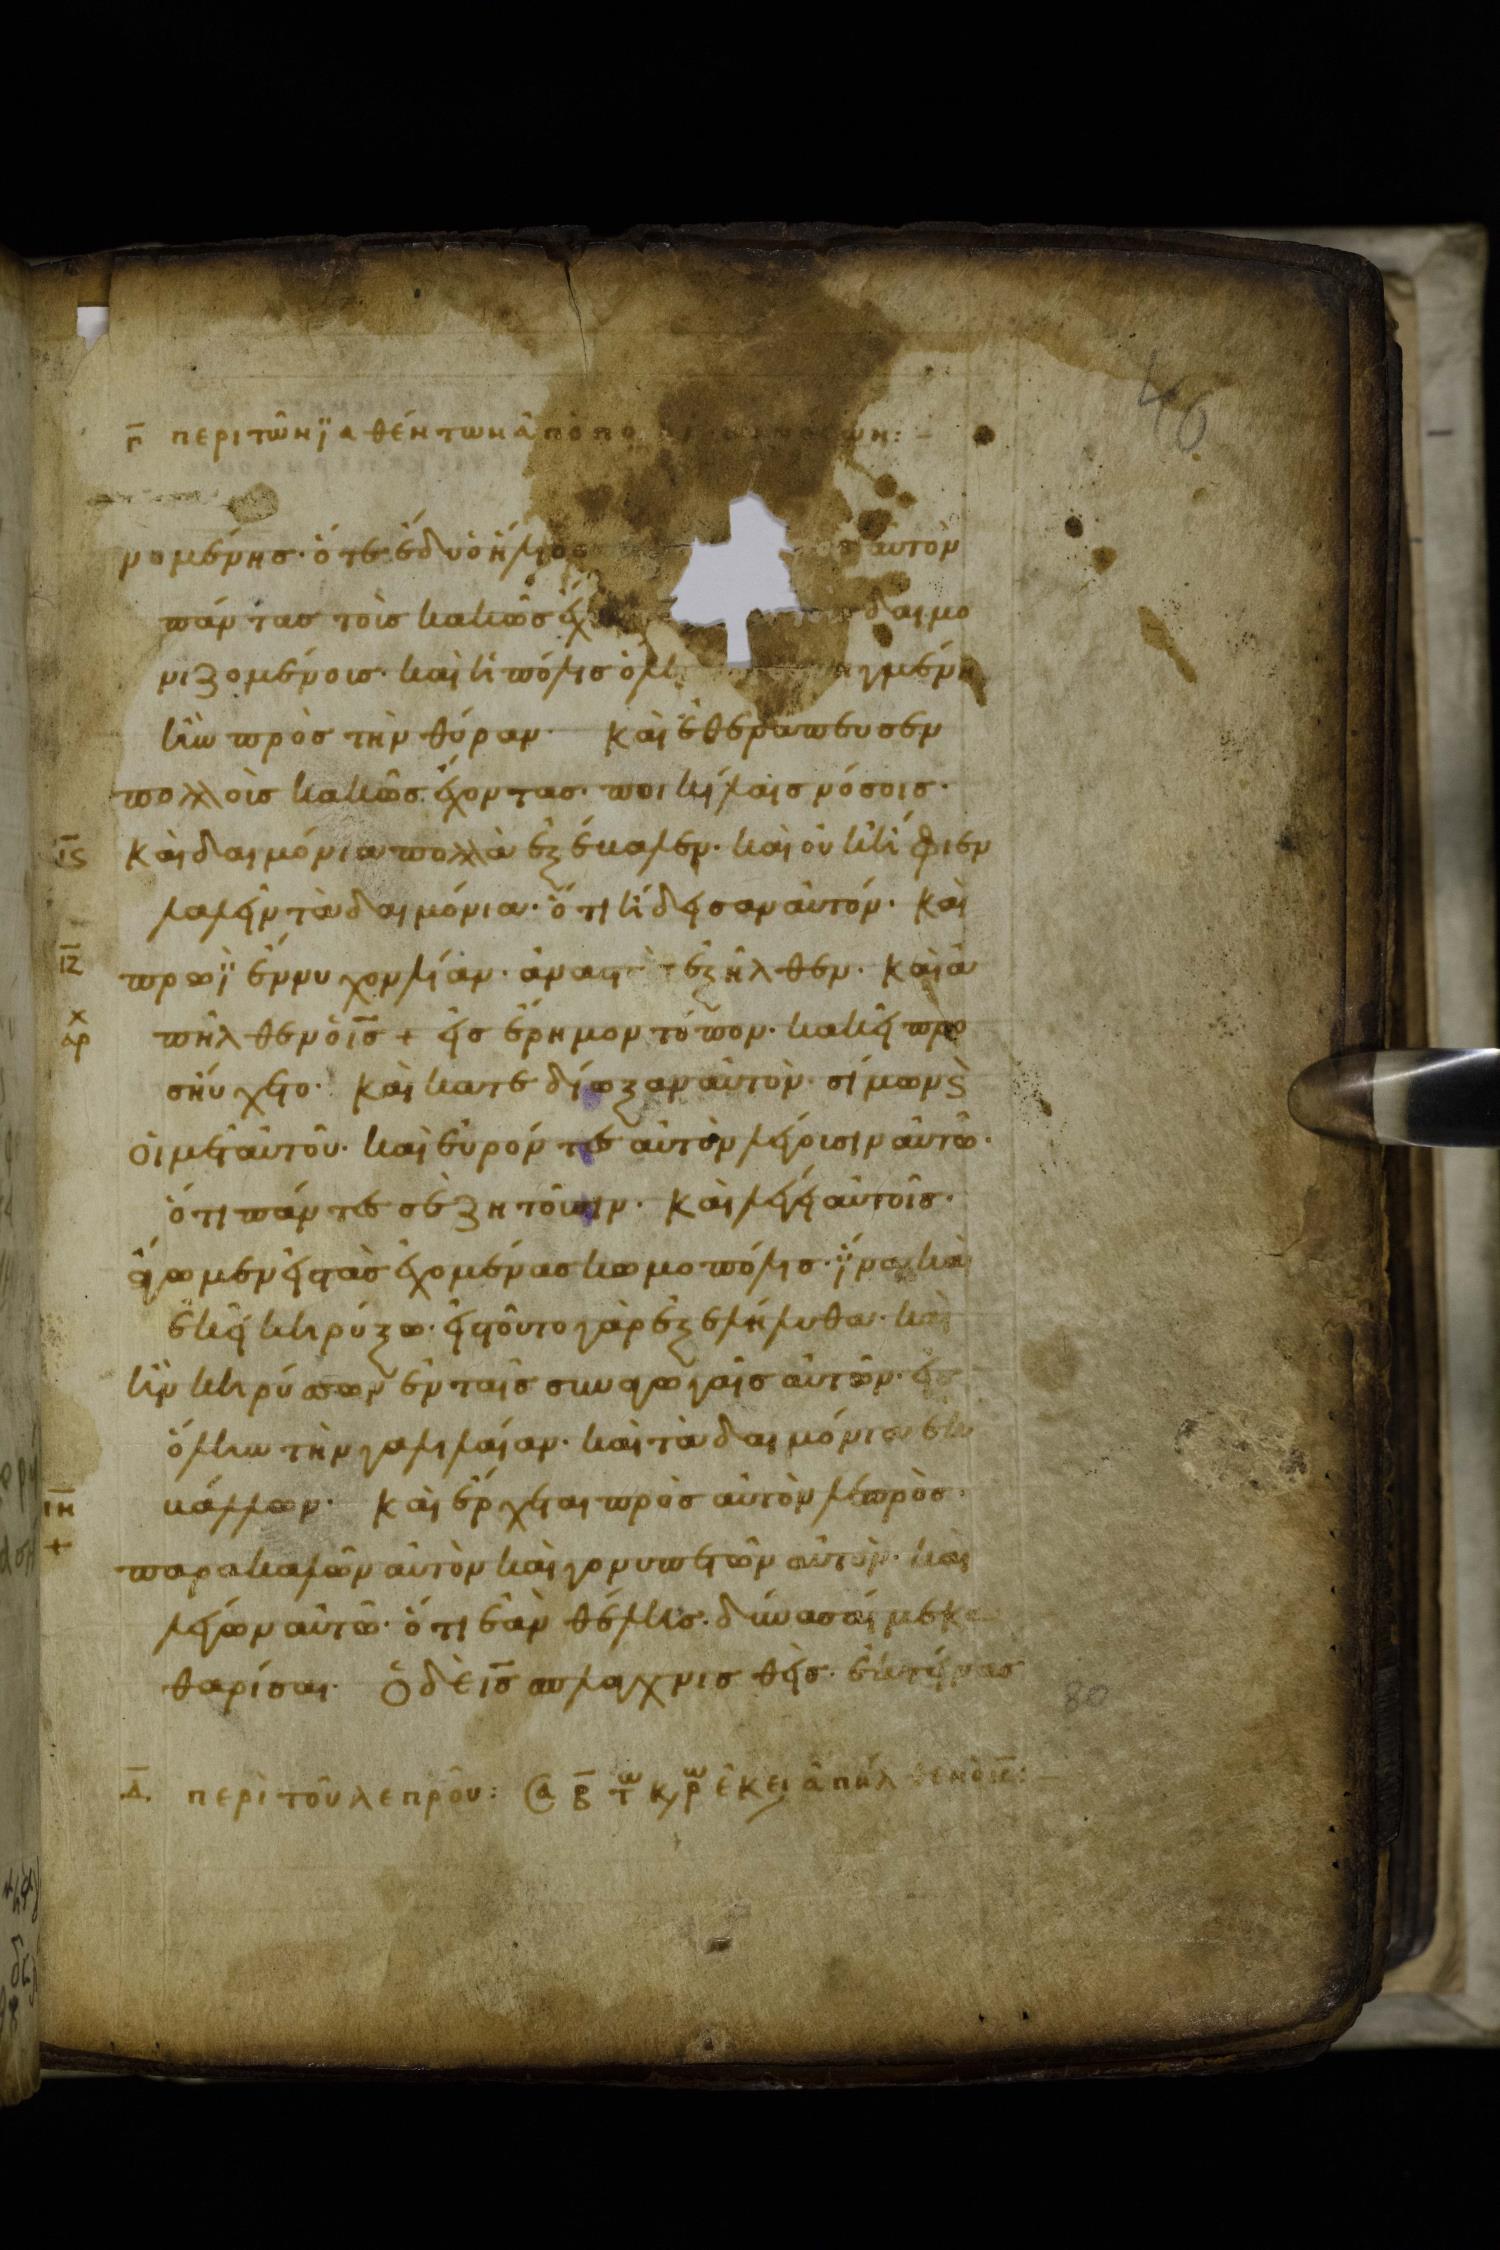 46
Γ̅ περὶ τῶν ϊαθέντων ἀπὸ
νομένης· ὅτε ἔδυ ὁ ἥλιος αὐτὸν
πάντας τοὺς κακῶς δαιμο
νιζομένοις· καὶ ἡ πόλις
ἦν πρὸς τὴν θύραν· Καὶ ἐθεράπευσεν
πολλοὺς κακῶς ἔχοντας· ποικίλαις νόσοις·
ι̅ϛ̅ Καὶ δαιμόνια πολλὰ ἐξέβαλεν· καὶ οὐκ ἤφιεν
λαλεῖν τὰ δαιμόνια· ὅτι ἤδεισαν αὐτόν· Καὶ
ι̅ζ̅ πρωῒ ἔννυχον λίαν· ἐξῆλθεν· Καὶ ἀ
αρχ πῆλθεν ὁ ι̅ς̅ + εἰς ἔρημον τόπον· κἀκεῖ προ
σηύχετο· Καὶ κατεδίωξαν αὐτὸν· σίμων ϗ
οἱ μετ αὐτοῦ· καὶ εὑρόντες αὐτὸν λέγουσιν αὐτῶ·
ὅτι πάντες σὲ ζητοῦσιν· Καὶ λέγει αὐτοῖς·
ἄγωμεν εἰς τὰς ἐχομένας κωμοπόλεις· ἵνα κα
ἐκεῖ κηρύξω· εἰς τοῦτο γὰρ ἐξελήλυθα· καὶ
ἦν κηρύσσων ἐν ταῖς συναγωγαῖς αὐτῶν· εἰς
ὅλην τὴν γαλιλαίαν· καὶ τὰ δαιμόνια ἐκ
ι̅η̅ βάλλων· Καὶ ἔρχεται πρὸς αὐτὸν λεπρὸς·
+ παρακαλῶν αὐτὸν καὶ γονυπετῶν αὐτὸν· καὶ
λέγων αὐτῶ· ὅτι ἐὰν θέλης· δύνασαί με κα
θαρίσαι· Ὁ δὲ ι̅ς̅ σπλαγχνισθεὶς· ἐκτείνας
80
Δ̅ περὶ τοῦ λεπροῦ: β̅ τω κρω ἐκει ἀπῆλθεν ὁ ι̅ς̅: